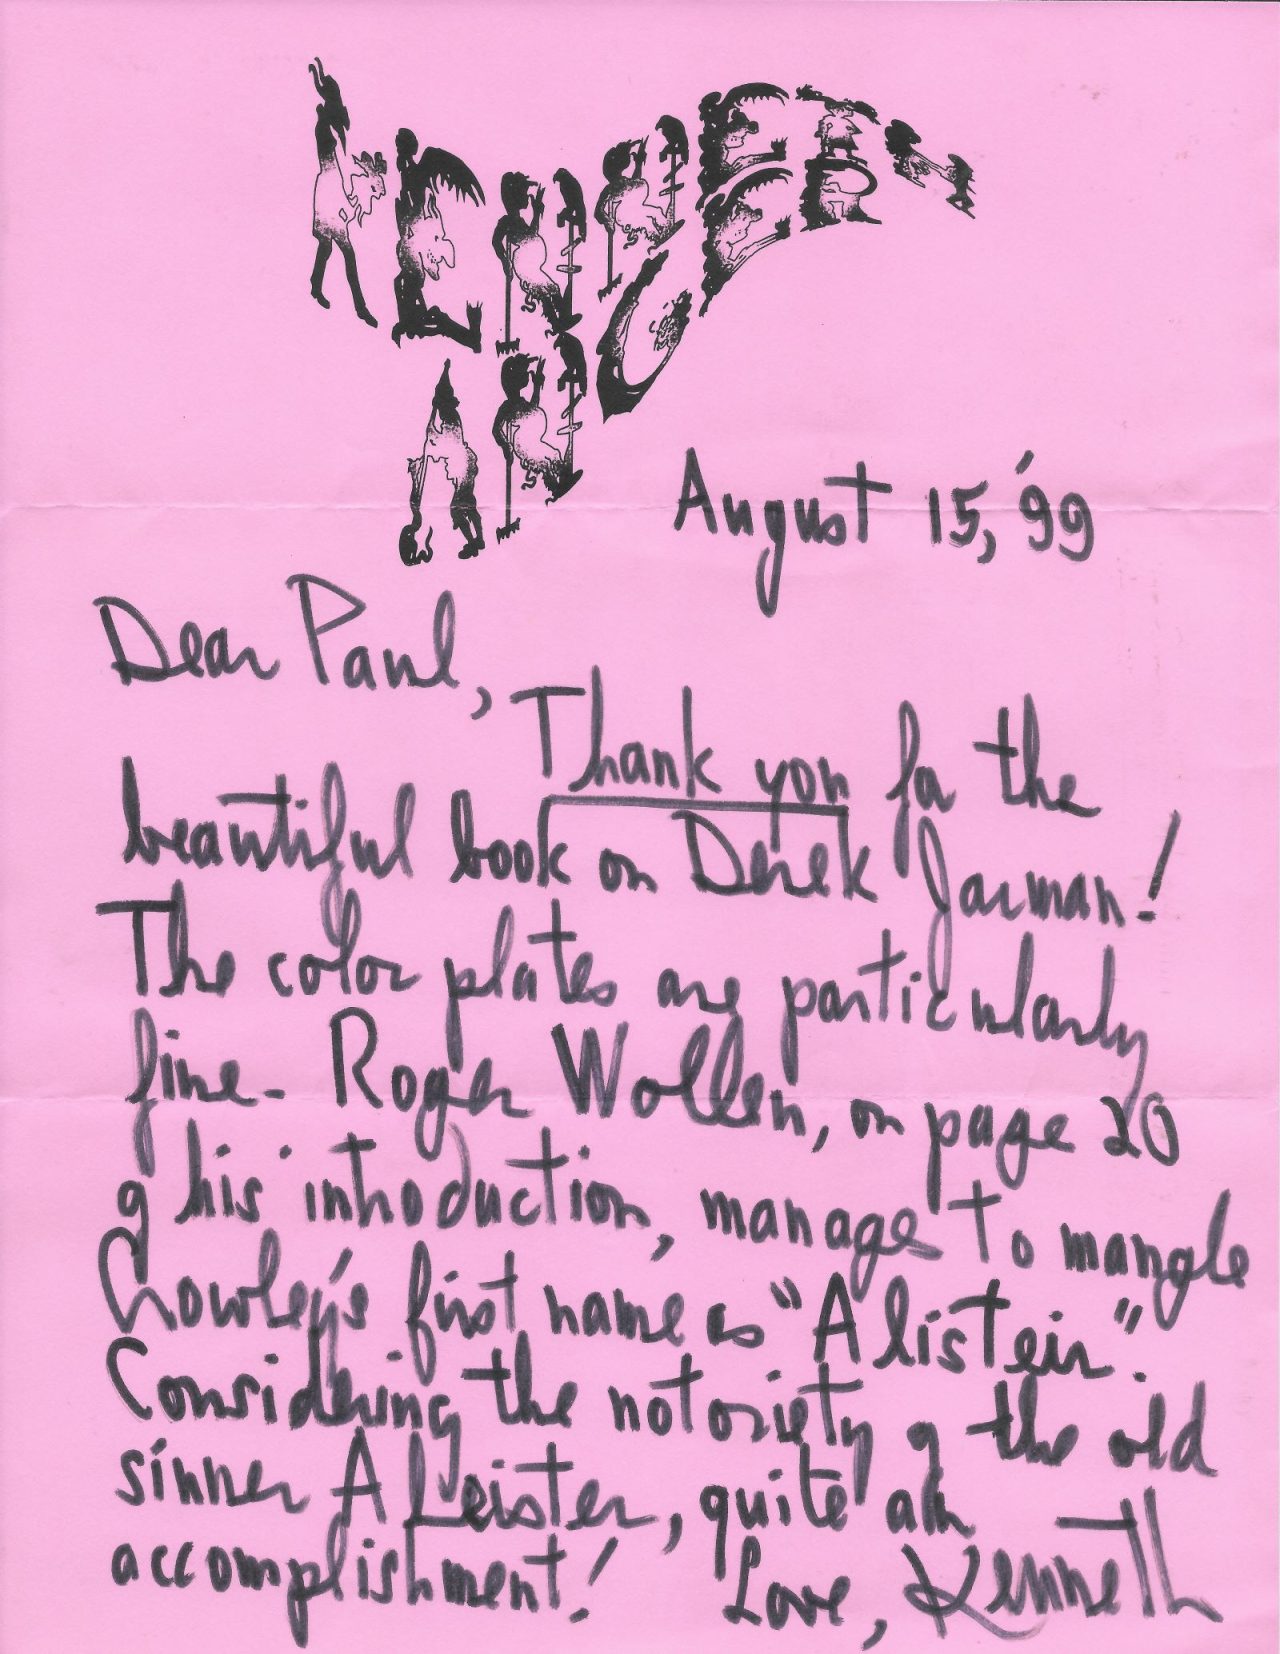 KENNETH
ANGER
August 15, '99
Dear Paul,
Thank you for the
beautiful book on Derek Jarman!
The color plates are particularly
fine - Roger Wollen, on page 20
of his introduction, manages to mangle
Crowley's first name as "Alisteir".
Considering the notoriety of the old
sinner ALeister, quite an
accomplishment! Love, Kenneth